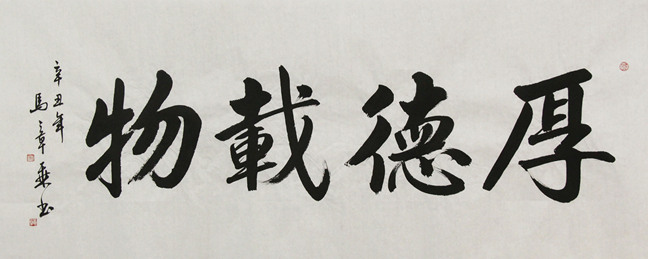 厚德載物
辛丑年
馬章乘書